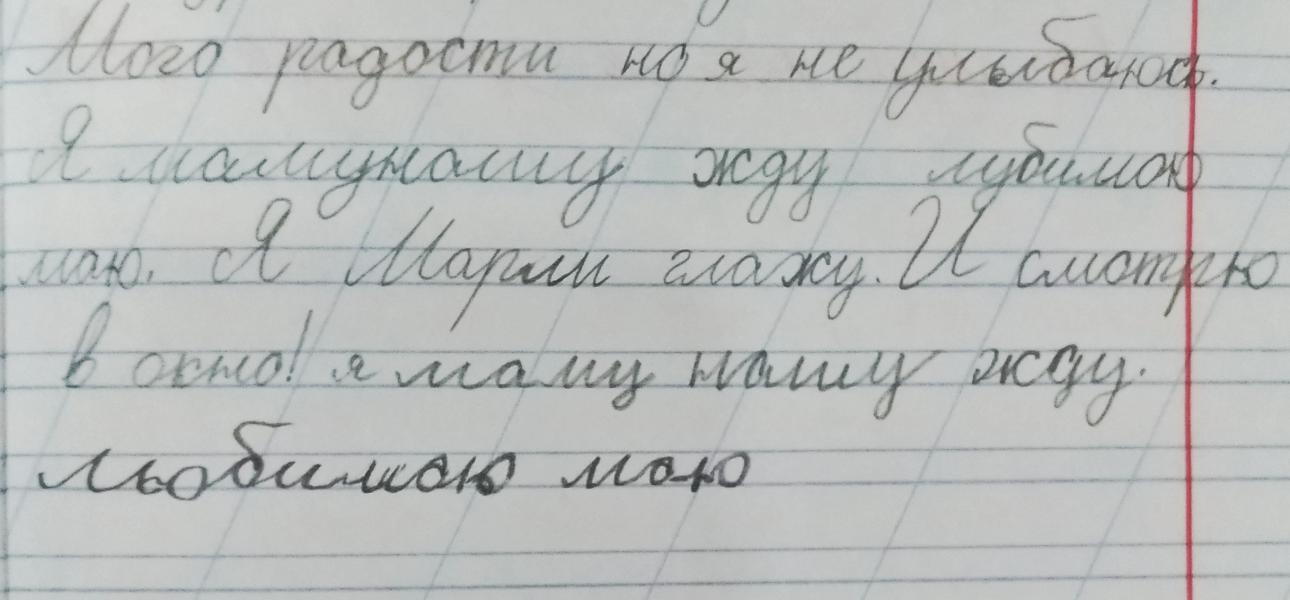 Мого радости но я не улыбаюсь.
Я мамунашу жду лубимаю
маю. Я Марли глажу. И смотрю
в окно! я маму нашу жду.
льобимаю маю